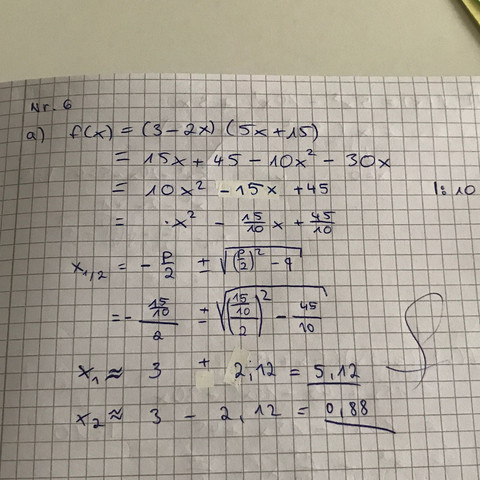 Nr. 6
a) f(x) = (3-2x) (5x+15)
= 15x + 45 - 10x² - 30x
= 10x² - 15x + 45 |: 10
= x² - 15/10 x + 45/10
x₁,₂ = - p/2 ± √((p/2)² - q)
= - (15/10)/2 ± √(((15/10)/2)² - 45/10)
x₁ ≈ 3 + 2,12 = 5,12
x₂ ≈ 3 - 2,12 = 0,88